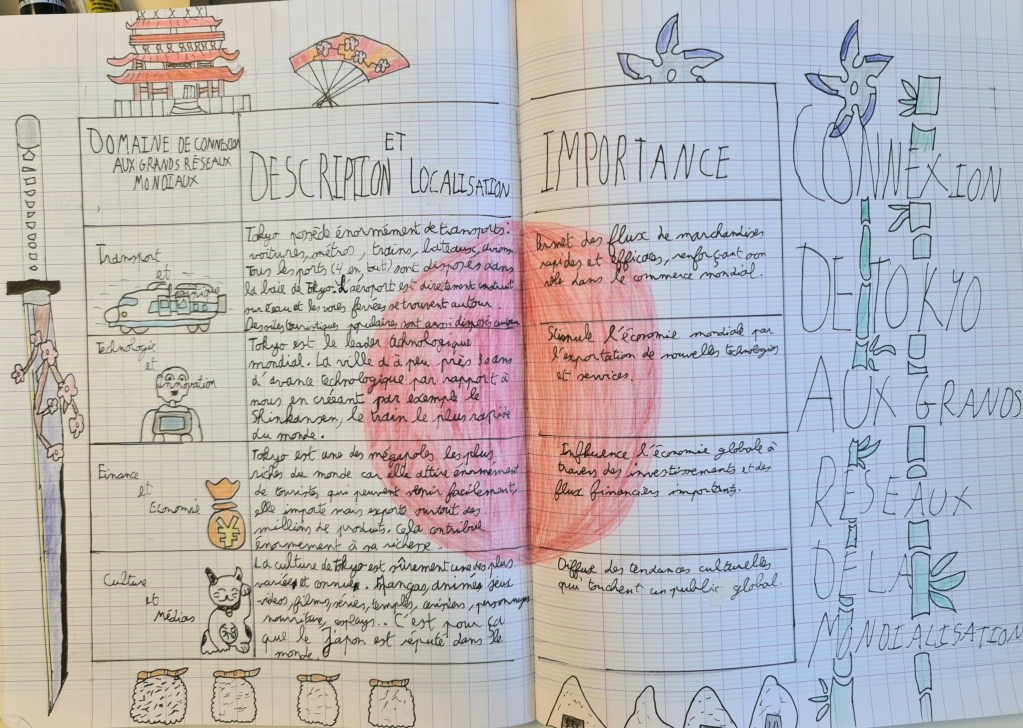 DOMAINE DE CONNEXION
AUX GRANDS RÉSEAUX
MONDIAUX
ET
DESCRIPTION LOCALISATION
IMPORTANCE
Transport
et
Tokyo possède énormément de transports :
voitures, métros, trains, bateaux, avions.
Tous les ports (4 en tout) sont disposés dans
la baie de Tokyo. L'aéroport est directement
sur l'eau et les voies ferrées se trouvent autour.
populaires sont aussi disposés autour
Permet des flux de marchandises
rapides et efficaces, renforçant son
rôle dans le commerce mondial.
Technologie
et
Innovation
Tokyo est le leader technologique
mondial. La ville à à peu près 30 ans
d'avance technologique par rapport à
nous en créeant par exemple le
Shinkansen, le train le plus rapide
du monde.
Stimule l'économie mondiale par
l'exportation de nouvelles technologies
et services.
Finance
et
Economie
¥
Tokyo est une des mégapoles les plus
riches du monde car elle attire énormément
de touristes qui peuvent venir facilement,
elle importe mais exporte surtout des
millions de produits. Cela contribue
énormement à sa richesse.
Influence l'économie globale à
travers des investissements et des
flux financiers importants.
Culture
et
Médias
La culture de Tokyo est sûrement une des plus
variées et connues. Mangas, animes, jeux
vidéos, films, séries, temples, cerisiers, personnages
nourriture, cosplays... C'est pour ça
que le Japon est réputé dans le
monde.
Diffuse des tendances culturelles
qui touchent un public global.
CONNEXION
DE TOKYO
AUX GRANDS
RESEAUX
DE LA
MONDIALISATION